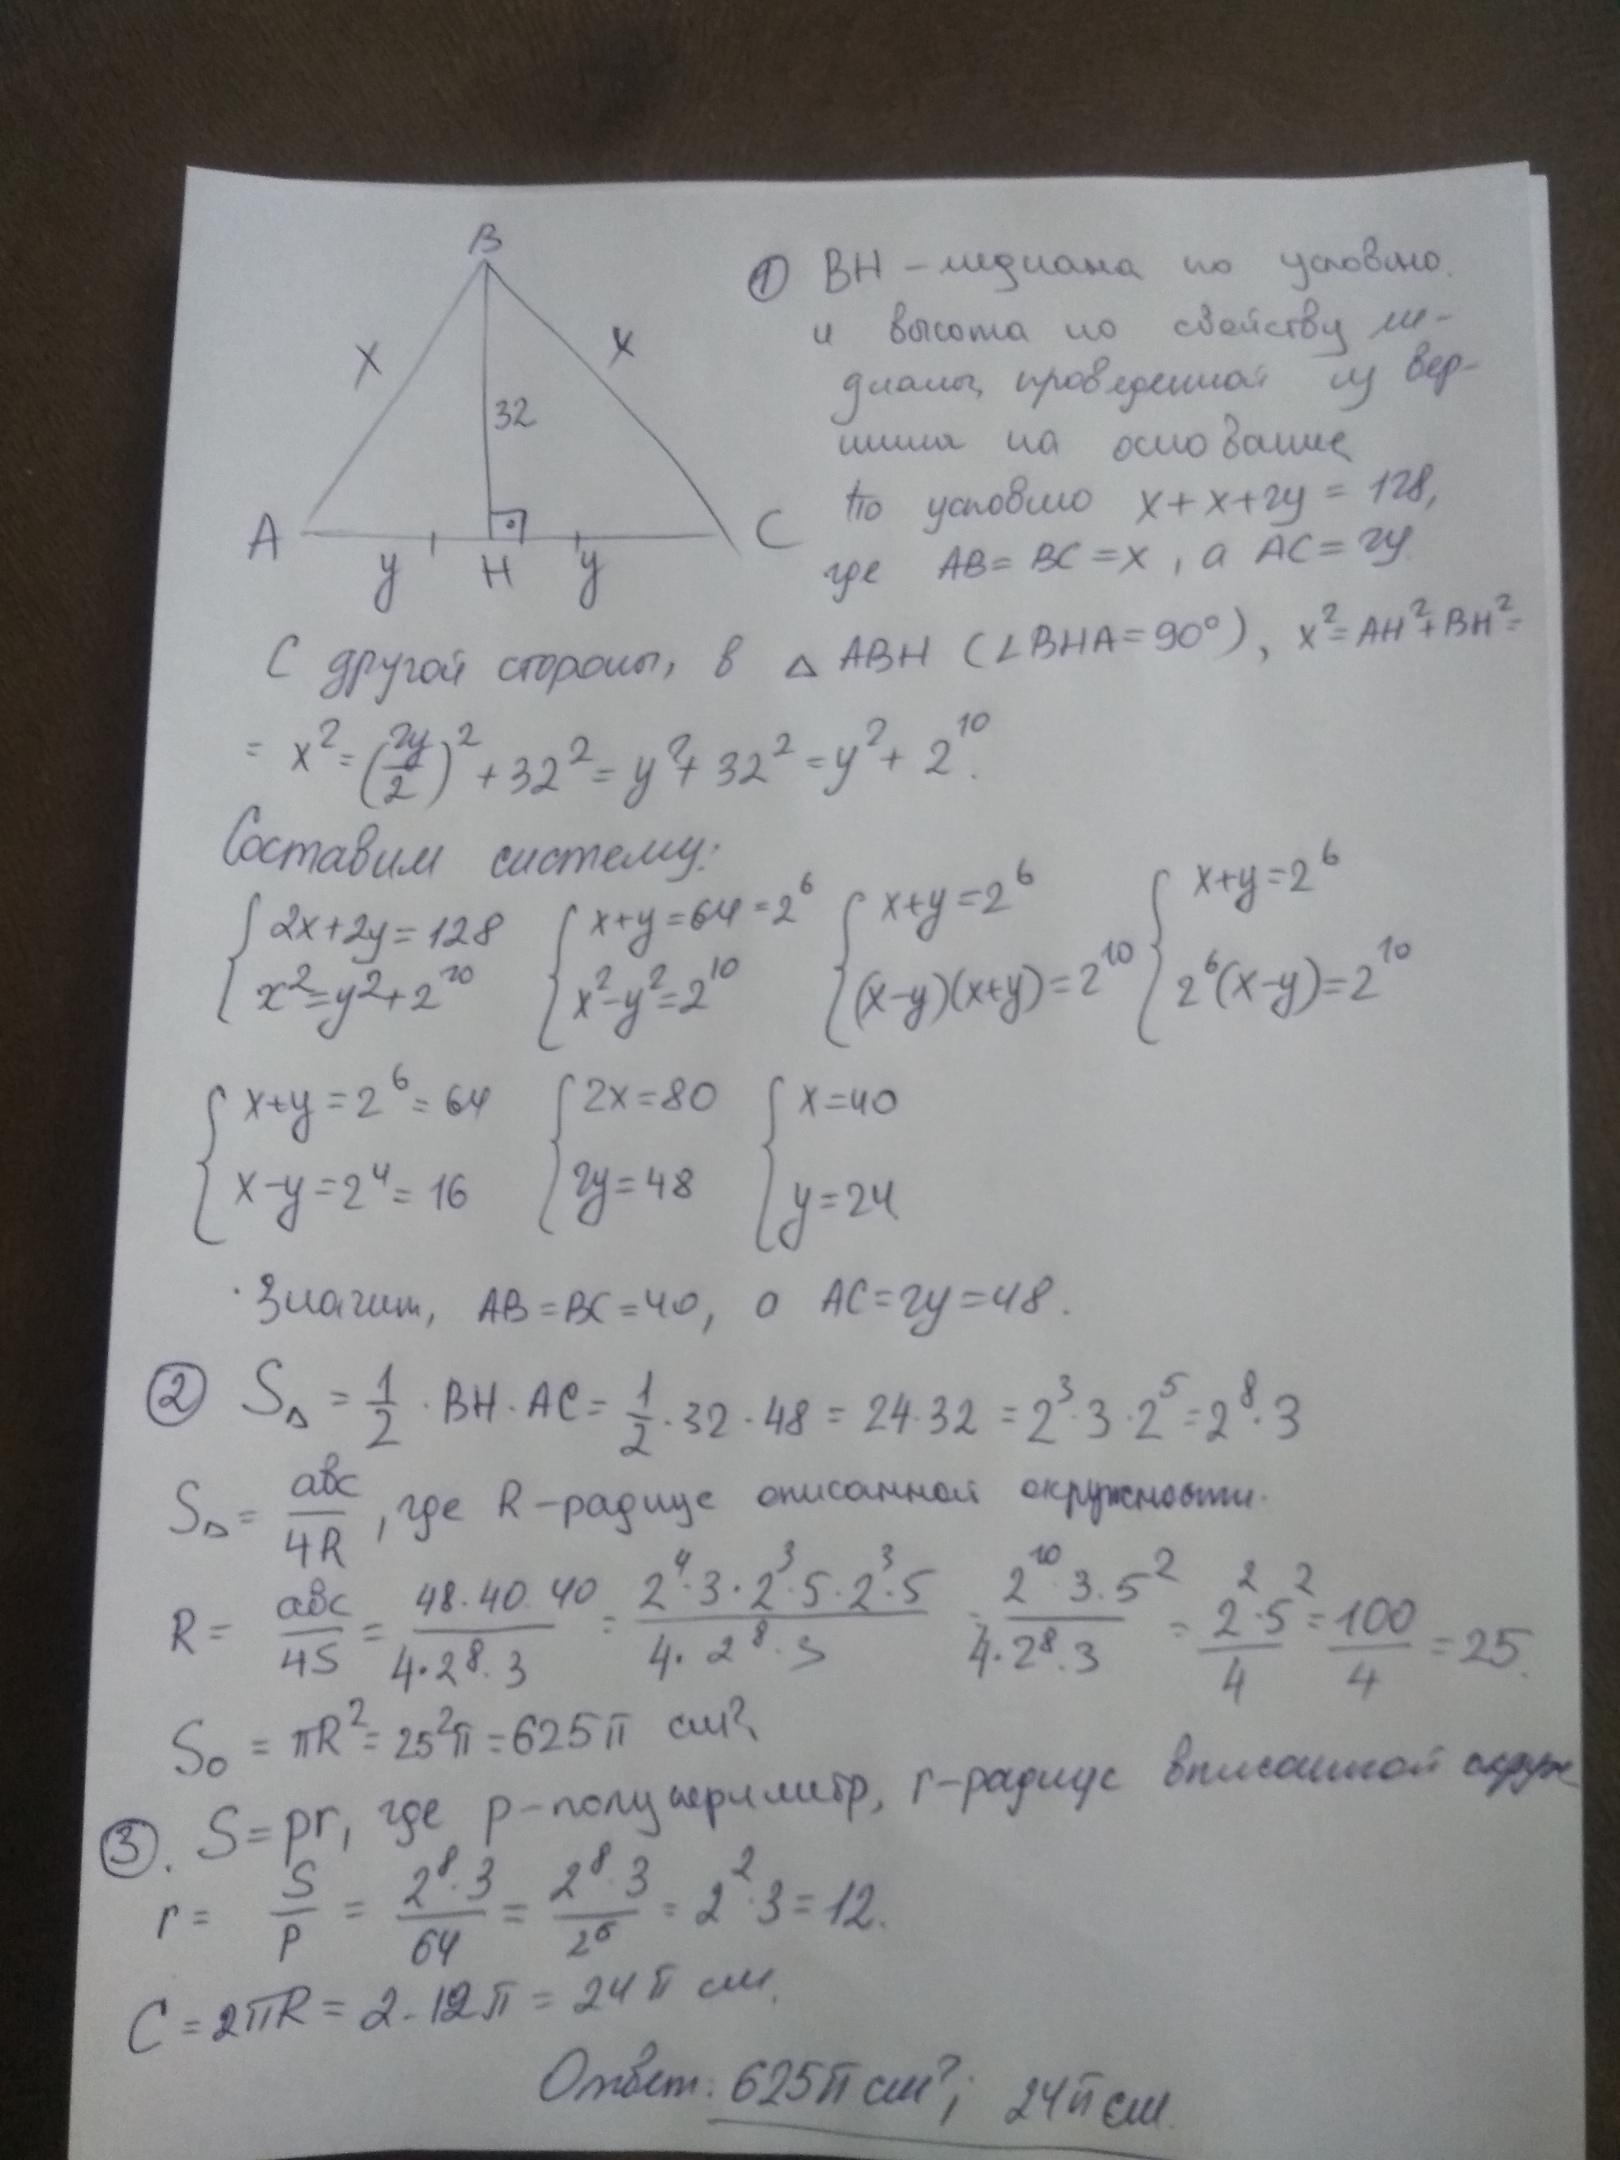 B
x
x
32
A
y
H
y
C
① BH – медиана по условию
и высота по свойству ме-
дианы, проведенной из вер-
шины на основание
По условию x + x + 2y = 128,
где AB = BC = x, а AC = 2y
С другой стороны, в △ ABH (∠BHA = 90°), x² = AH² + BH² =
= x² = (2y/2)² + 32² = y² + 32² = y² + 2¹⁰.
Составим систему:
{ 2x + 2y = 128 { x + y = 64 = 2⁶ { x + y = 2⁶ { x + y = 2⁶
x² = y² + 2¹⁰ x² – y² = 2¹⁰ (x – y)(x + y) = 2¹⁰ 2⁶(x – y) = 2¹⁰
{ x + y = 2⁶ = 64 { 2x = 80 { x = 40
x – y = 2⁴ = 16 2y = 48 y = 24
Значит, AB = BC = 40, а AC = 2y = 48.
② S△ = 1/2 · BH · AC = 1/2 · 32 · 48 = 24 · 32 = 2³ · 3 · 2⁵ = 2⁸ · 3
S△ = abc/4R, где R – радиус описанной окружности.
R = abc/4S = 48 · 40 · 40/4 · 2⁸ · 3 = 2⁴ · 3 · 2³ · 5 · 2³ · 5/4 · 2⁸ · 3 = 2¹⁰ · 3 · 5²/4 · 2⁸ · 3 = 2² · 5²/4 = 100/4 = 25.
S○ = πR² = 25²π = 625π см²
③. S = pr, где p – полупериметр, r – радиус вписанной окруж
r = S/p = 2⁸ · 3/64 = 2⁸ · 3/2⁶ = 2² · 3 = 12.
C = 2πR = 2 · 12π = 24π см.
Ответ: 625π см²; 24π см.